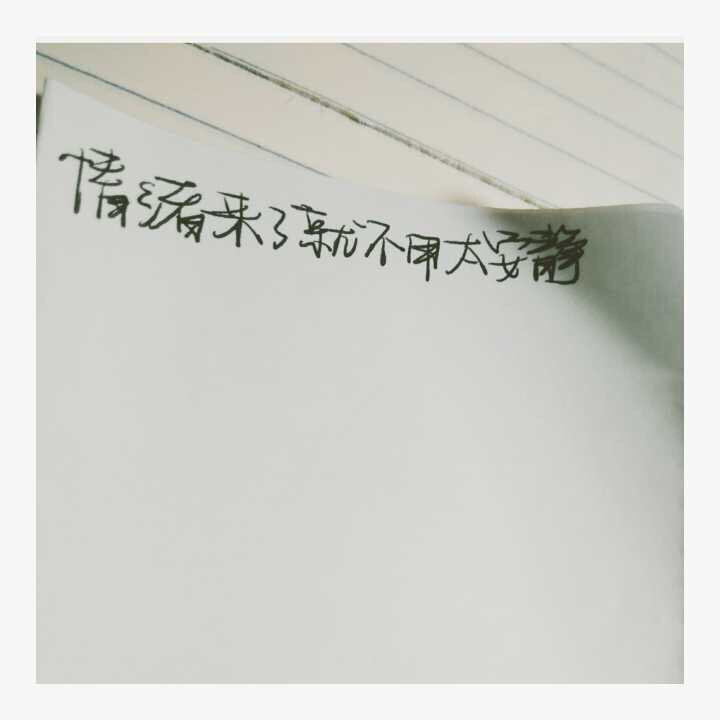 情绪来了就不用太安静